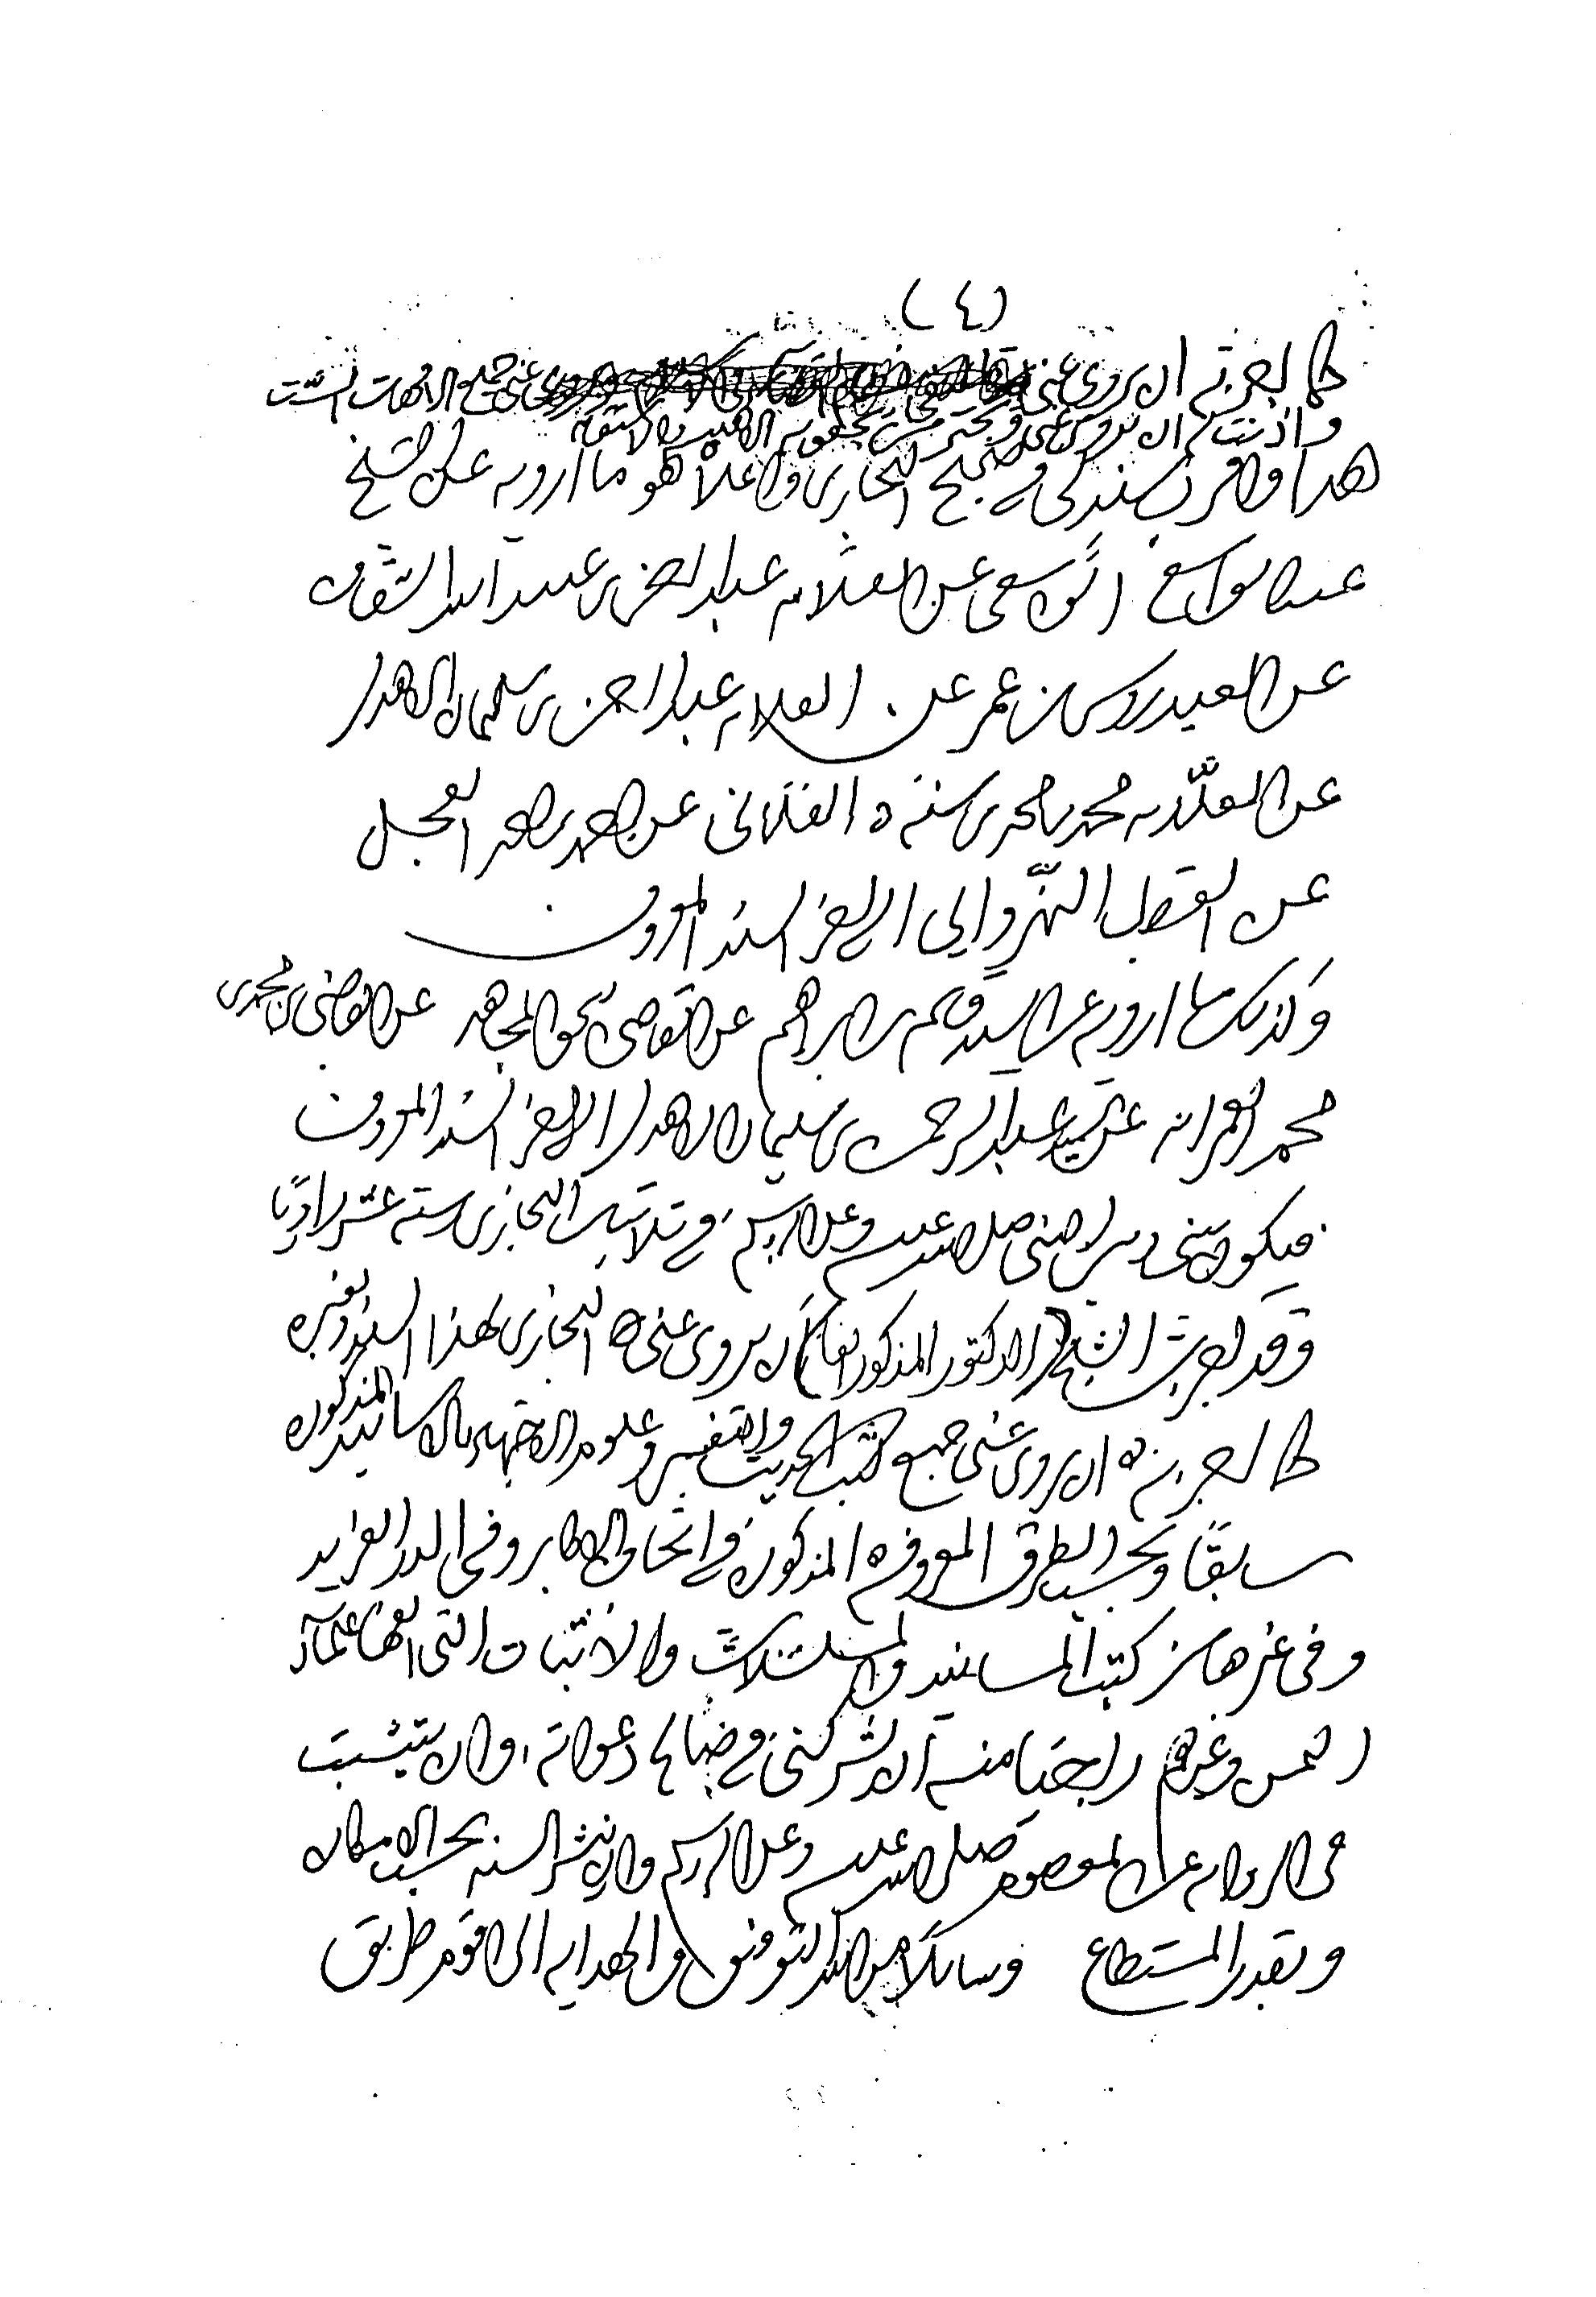 (٤)
كما أجزته ان يروي عني جميع الامهات الست
واذنت له ان يروي عني
هذا وأقرب سندي في صحيح البخاري واعلاه هو ما ارويه عن الشيخ
عبدالواسع الواسعي عن العلامه عبدالرحمن بن عبيد الله السقاف
عن العيدروس بن عمر عن العلامه عبدالرحمن بن سليمان الاهدل
عن العلّامه محمد بن محمد بن سنه الفلاني عن احمد بن العجل
عن القطب النهروالي الى آخر السند المعروف
وكذلك ما ارويه عن السيد قاسم بن ابراهيم عن القاضي يحي المجاهد عن القاضي محمد بن
محمد العمراني عن السيد عبدالرحمن بن سليمان الاهدل الى آخر السند المعروف
فيكون بيني وبين النبي صلى الله عليه وعلى آله وسلم في ثلاثيات البخاري سته عشر راويًا
وقد أجزت الشيخ (الدكتور المذكور آنفا) ان يروي عني البخاري بهذا السند وبغيره
كما أجزته ان يروي عني جميع كتب الحديث والتفسير وعلوم الاجتهاد بالاسانيد المذكوره
سابقًا وبحسب الطرق المعروفه المذكوره في اتحاف الاكابر وفي الدرر الفرايد
وفي غيرها من كتب المسانيد والمسلسلات والاثبات التي الفها علماء
اليمن وغيرهم راجيا منه أن يشركني في صالح دعواته، وان يتثبت
في الروايه عن المعصوم صلى الله عليه وعلى آله وسلم وان ينشر السنه بحسب الامكان
وبقدر المستطاع وسائلا من الله التوفيق والهدايه الى اقوم طريق